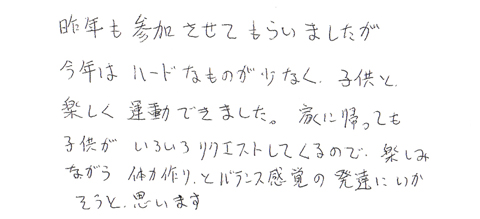 昨年も参加させてもらいましたが
今年はハードなものが少なく、子供と
楽しく運動できました。家に帰っても
子供がいろいろリクエストしてくるので、楽しみ
ながら体力作りとバランス感覚の発達にいか
そうと思います